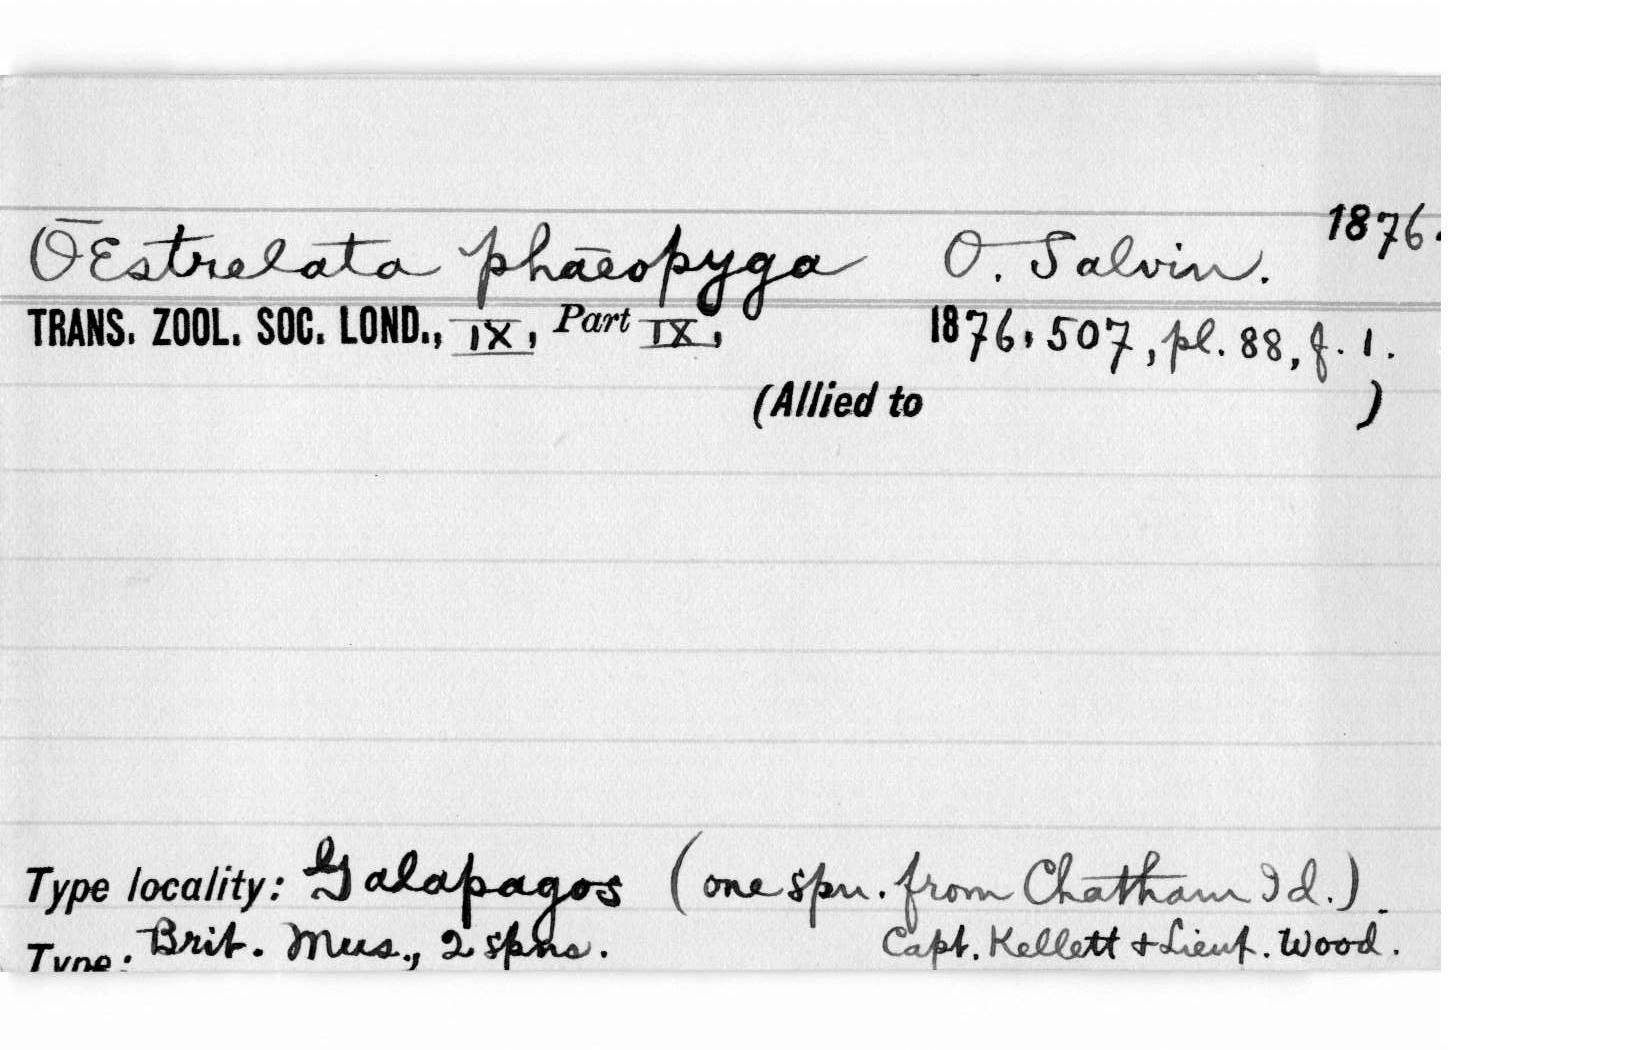 1876.
OEstrelata phaeopyga O. Salvin.
TRANS. ZOOL. SOC. LOND., IX, Part IX, 1876, 507, pl. 88, f. 1.
(Allied to )
Type locality: Galapagos (one spn. from Chatham Id.).
Type: Brit. Mus., 2 spns. Capt. Kellett + Lieut. Wood.